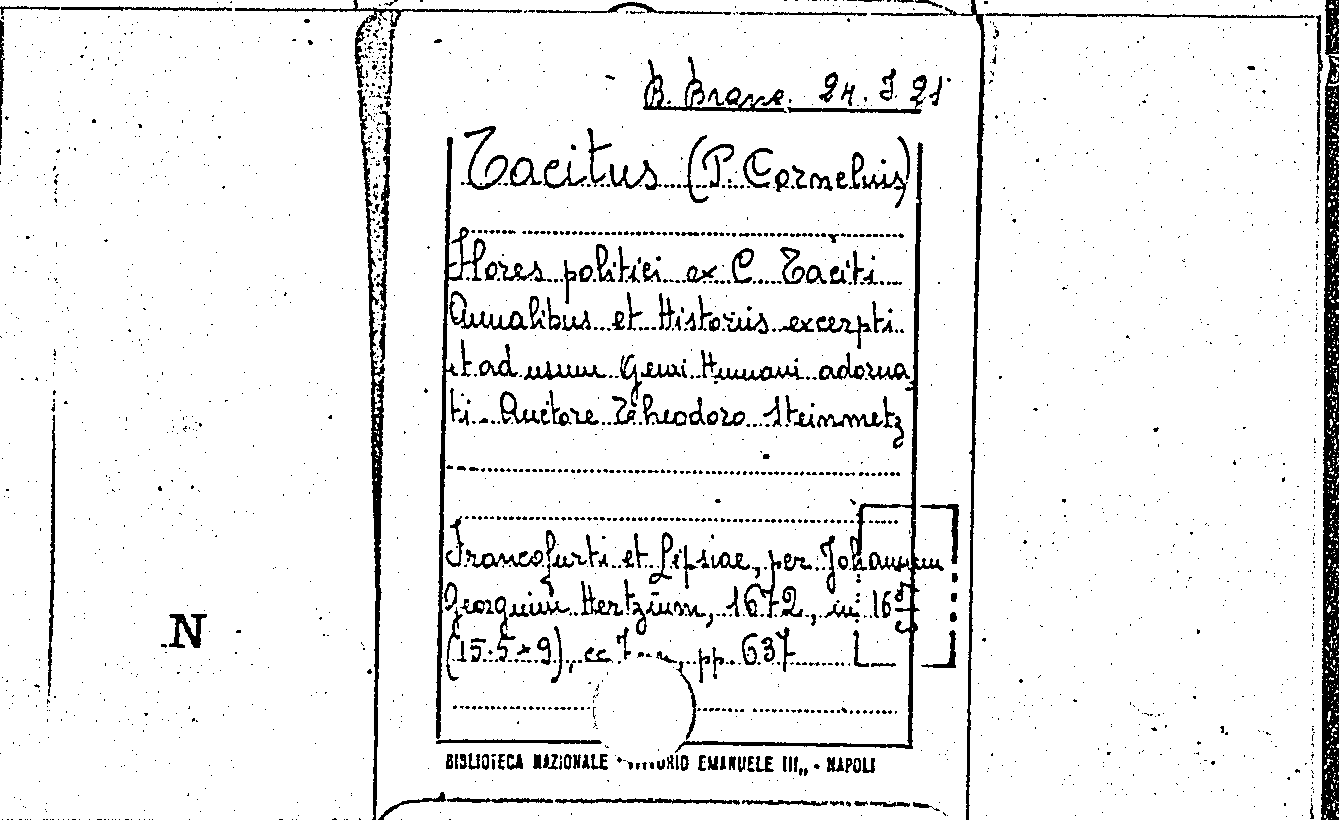 B. Branc. 24. J 21
Tacitus (P. Cornelius)
Flores politici ex C Taciti
Annalibus et Historiis excerpti
et ad usum Geni Humani adorna
ti. Auctore Theodoro Steinmetz
Francofurti et Lipsiae, per Johannem
Georgium Hertzium, 1672, in 16°
N
(15.5×9), cc 7 pp. 637
BIBLIOTECA NAZIONALE EMANUELE III„ - NAPOLI